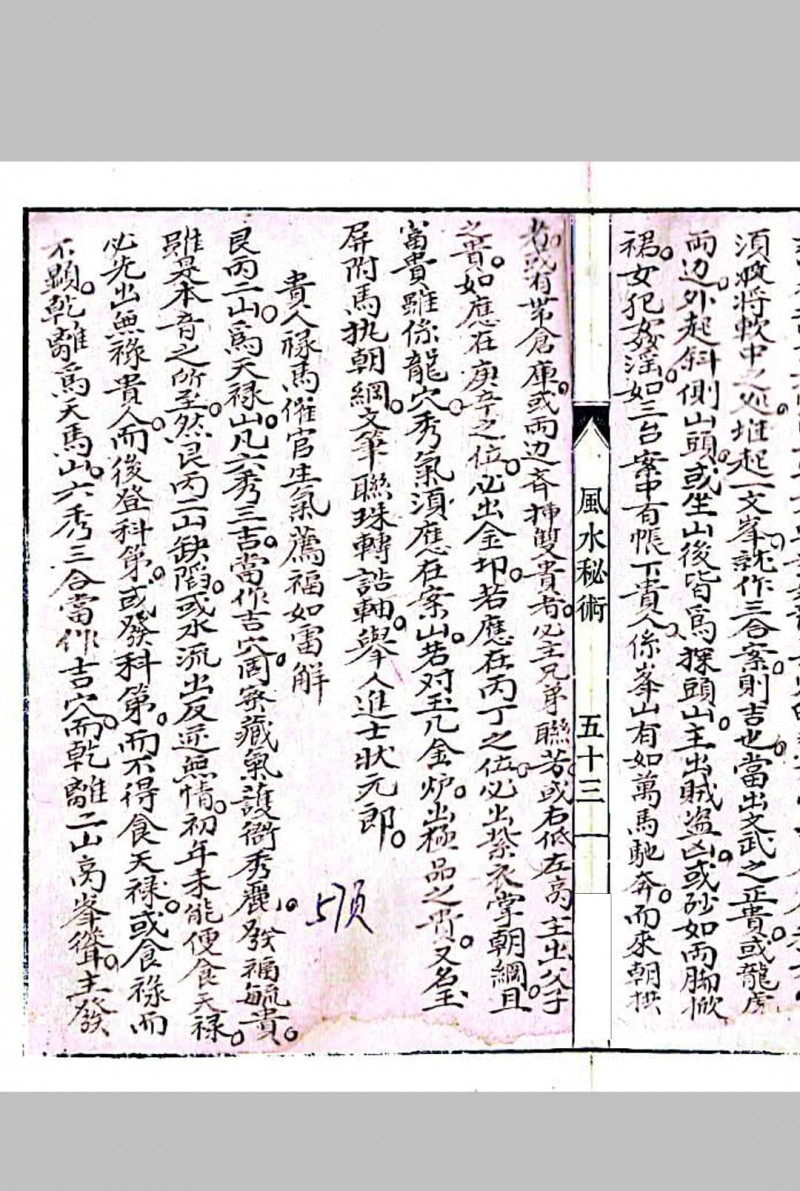 須收將軟中之処堆起一文峯託作三合案則吉也當出文武之正貴或龍虎
兩边外起斜側山頭或坐山後皆爲探頭山主出賊盗凶或砂如兩脚掀
裙女犯姦淫如三台案中有帳下貴人係峯山有如萬馬馳奔而來朝拱
風水秘術 五十三
者或有帶倉庫或兩边齐揷雙貴者必主兄弟聯芳或右低左高主出父子
之貴如應在庚辛之位必出金印若應在丙丁之位必出紫衣掌朝綱且
富貴雖係龍穴秀氣須應在案山若对玉几金炉出極品之貴又名玉
屏附馬执朝綱文筆聯珠轉誥軸舉人進士狀元郎
貴人祿馬催官生氣薦福如雷解
57頁
艮丙二山爲天祿山凡六秀三吉當作吉穴周寮藏氣護衛秀麗發福毓貴
雖是本音之所至然艮丙二山缺陷或水流出反逆無情初年未能便食天祿
必先出無祿貴人而後登科第或發科第而不得食天祿或食祿而
不顯乾離爲天馬山六秀三合當作吉穴而乾離二山高峯聳主發